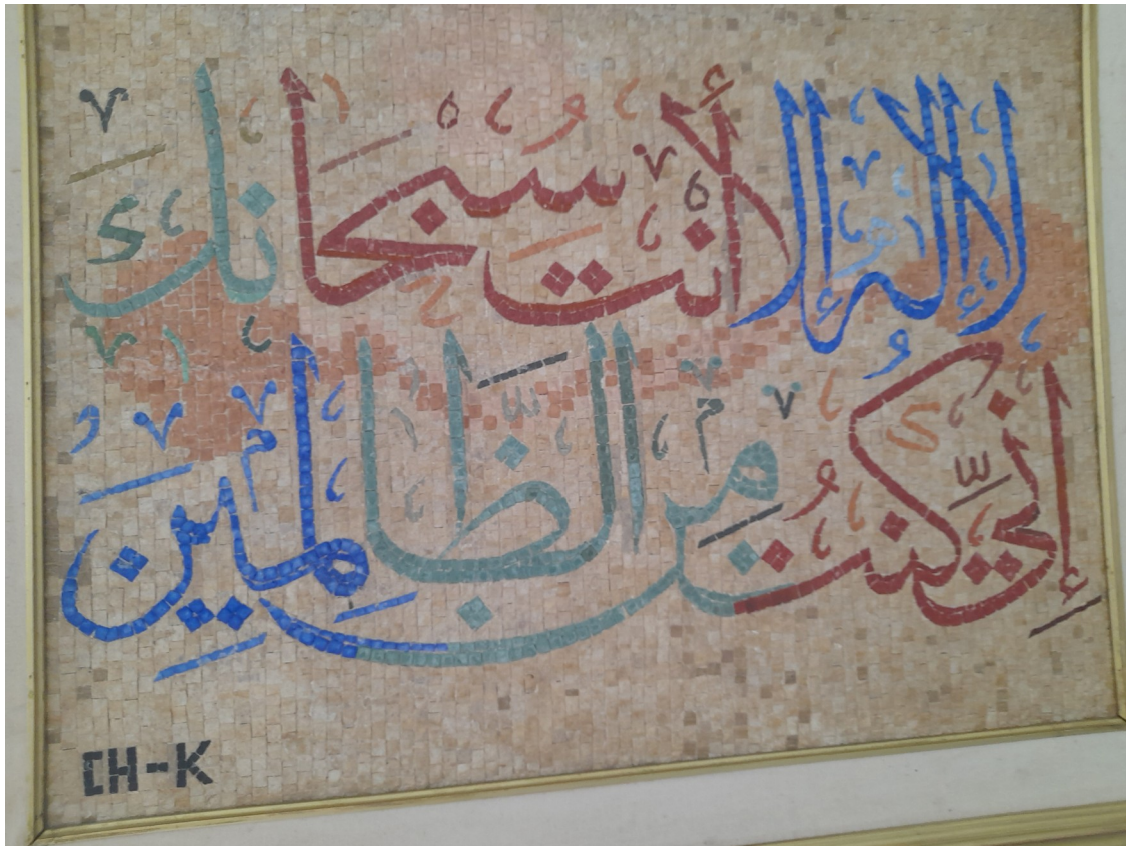 لا إله إلا أنت سبحانك
إني كنت من الظالمين
CH-K